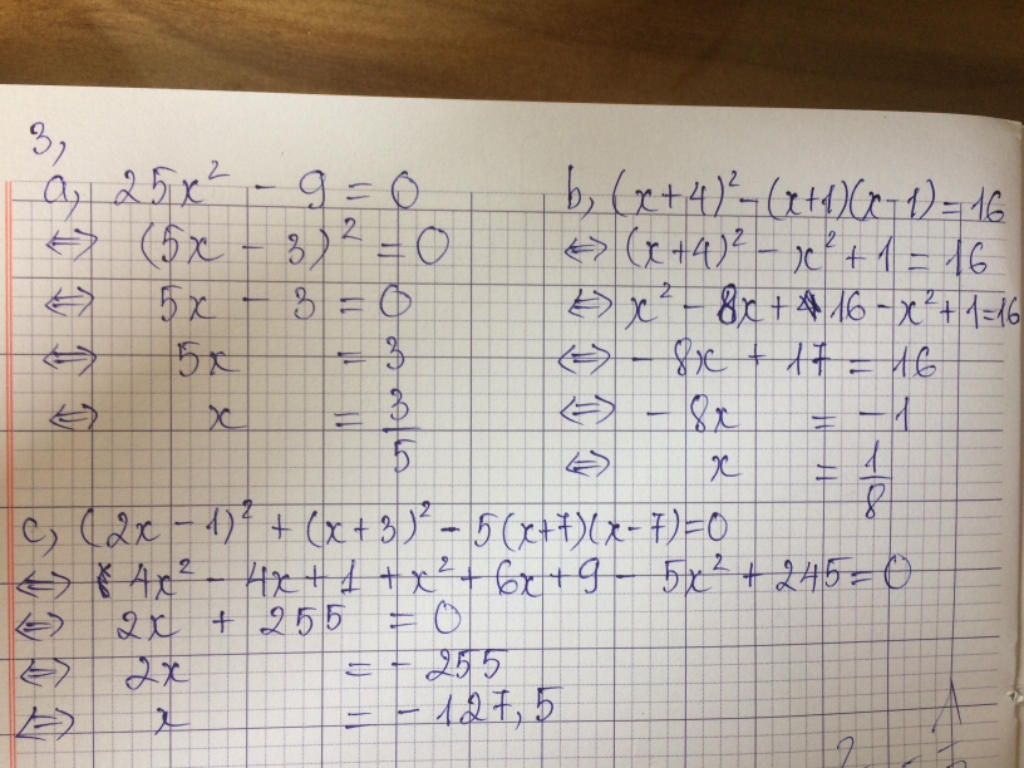 3,
a, 25x² - 9 = 0
⇔ (5x - 3)² = 0
⇔ 5x - 3 = 0
⇔ 5x = 3
⇔ x = 3/5
b, (x+4)² - (x+1)(x-1) = 16
⇔ (x+4)² - x² + 1 = 16
⇔ x² - 8x + 16 - x² + 1 = 16
⇔ - 8x + 17 = 16
⇔ - 8x = -1
⇔ x = 1/8
c, (2x - 1)² + (x+3)² - 5(x+7)(x-7) = 0
⇔ 4x² - 4x + 1 + x² + 6x + 9 - 5x² + 245 = 0
⇔ 2x + 255 = 0
⇔ 2x = - 255
⇔ x = - 127,5